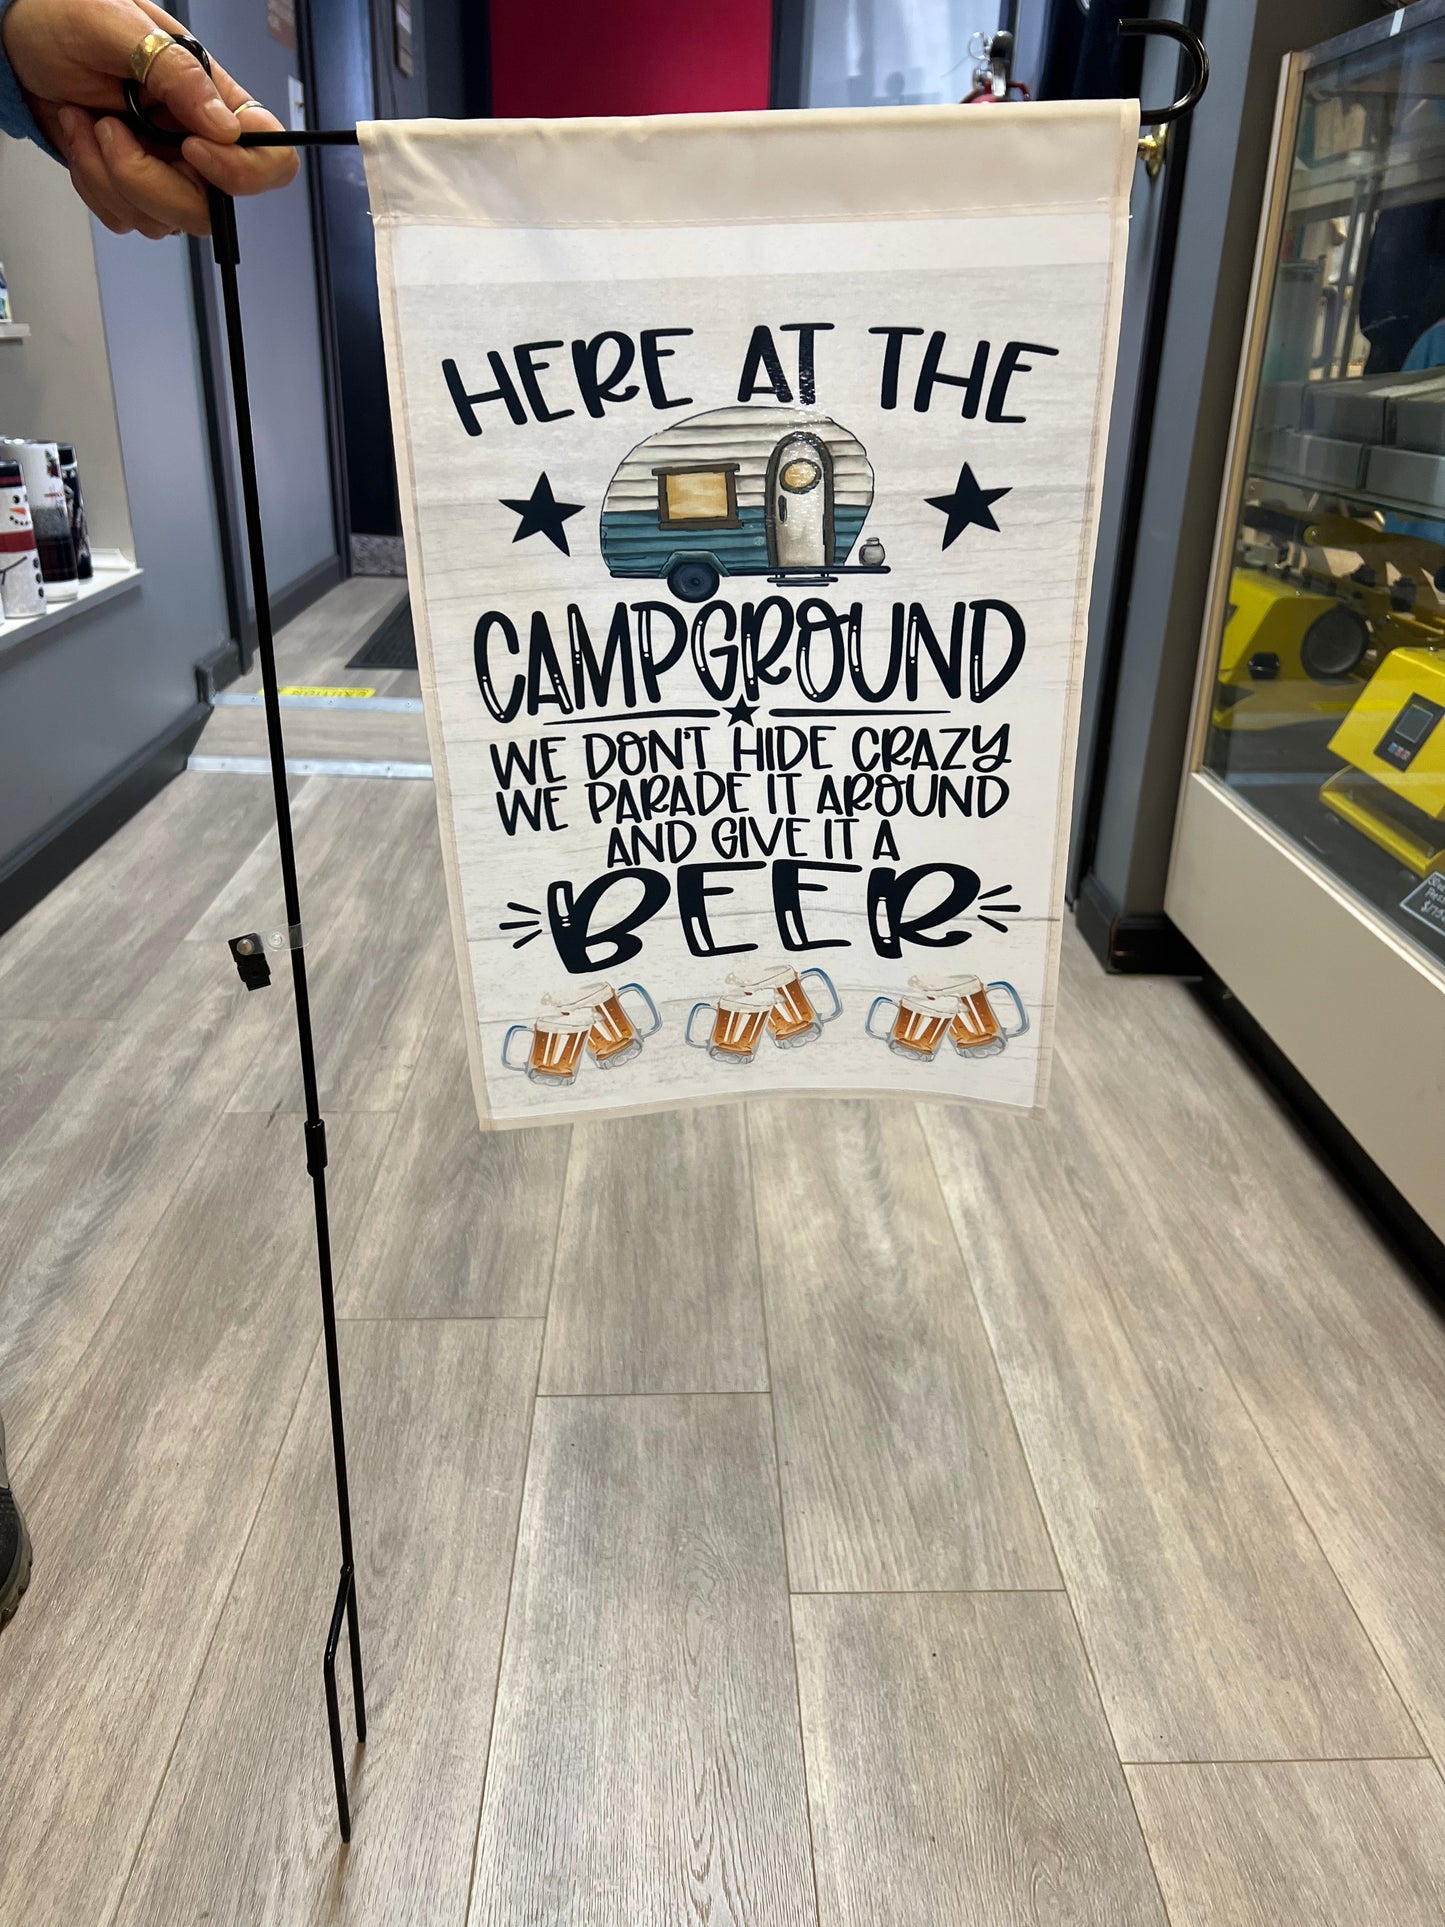 HERE AT THE
CAMPGROUND
WE DON'T HIDE CRAZY
WE PARADE IT AROUND
AND GIVE IT A
BEER
CAUTION